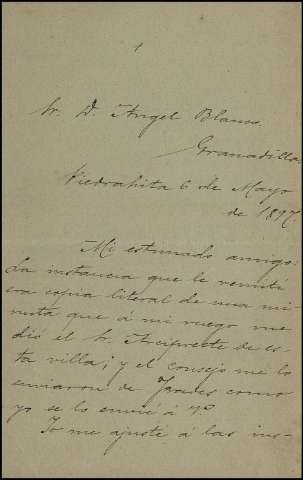 1
Sr. D. Angel Blanco.
Granadilla
Piedrahita 6 de Mayo
de 1897.
Mi estimado amigo:
La instancia que le remití
era copia literal de una mi
nuta que á mi ruego me
dió el Sr. Arcipreste de es
ta villa; y el consejo me lo
enviaron de como
yo se lo envié á Vd
Yo me ajusté á las ins-